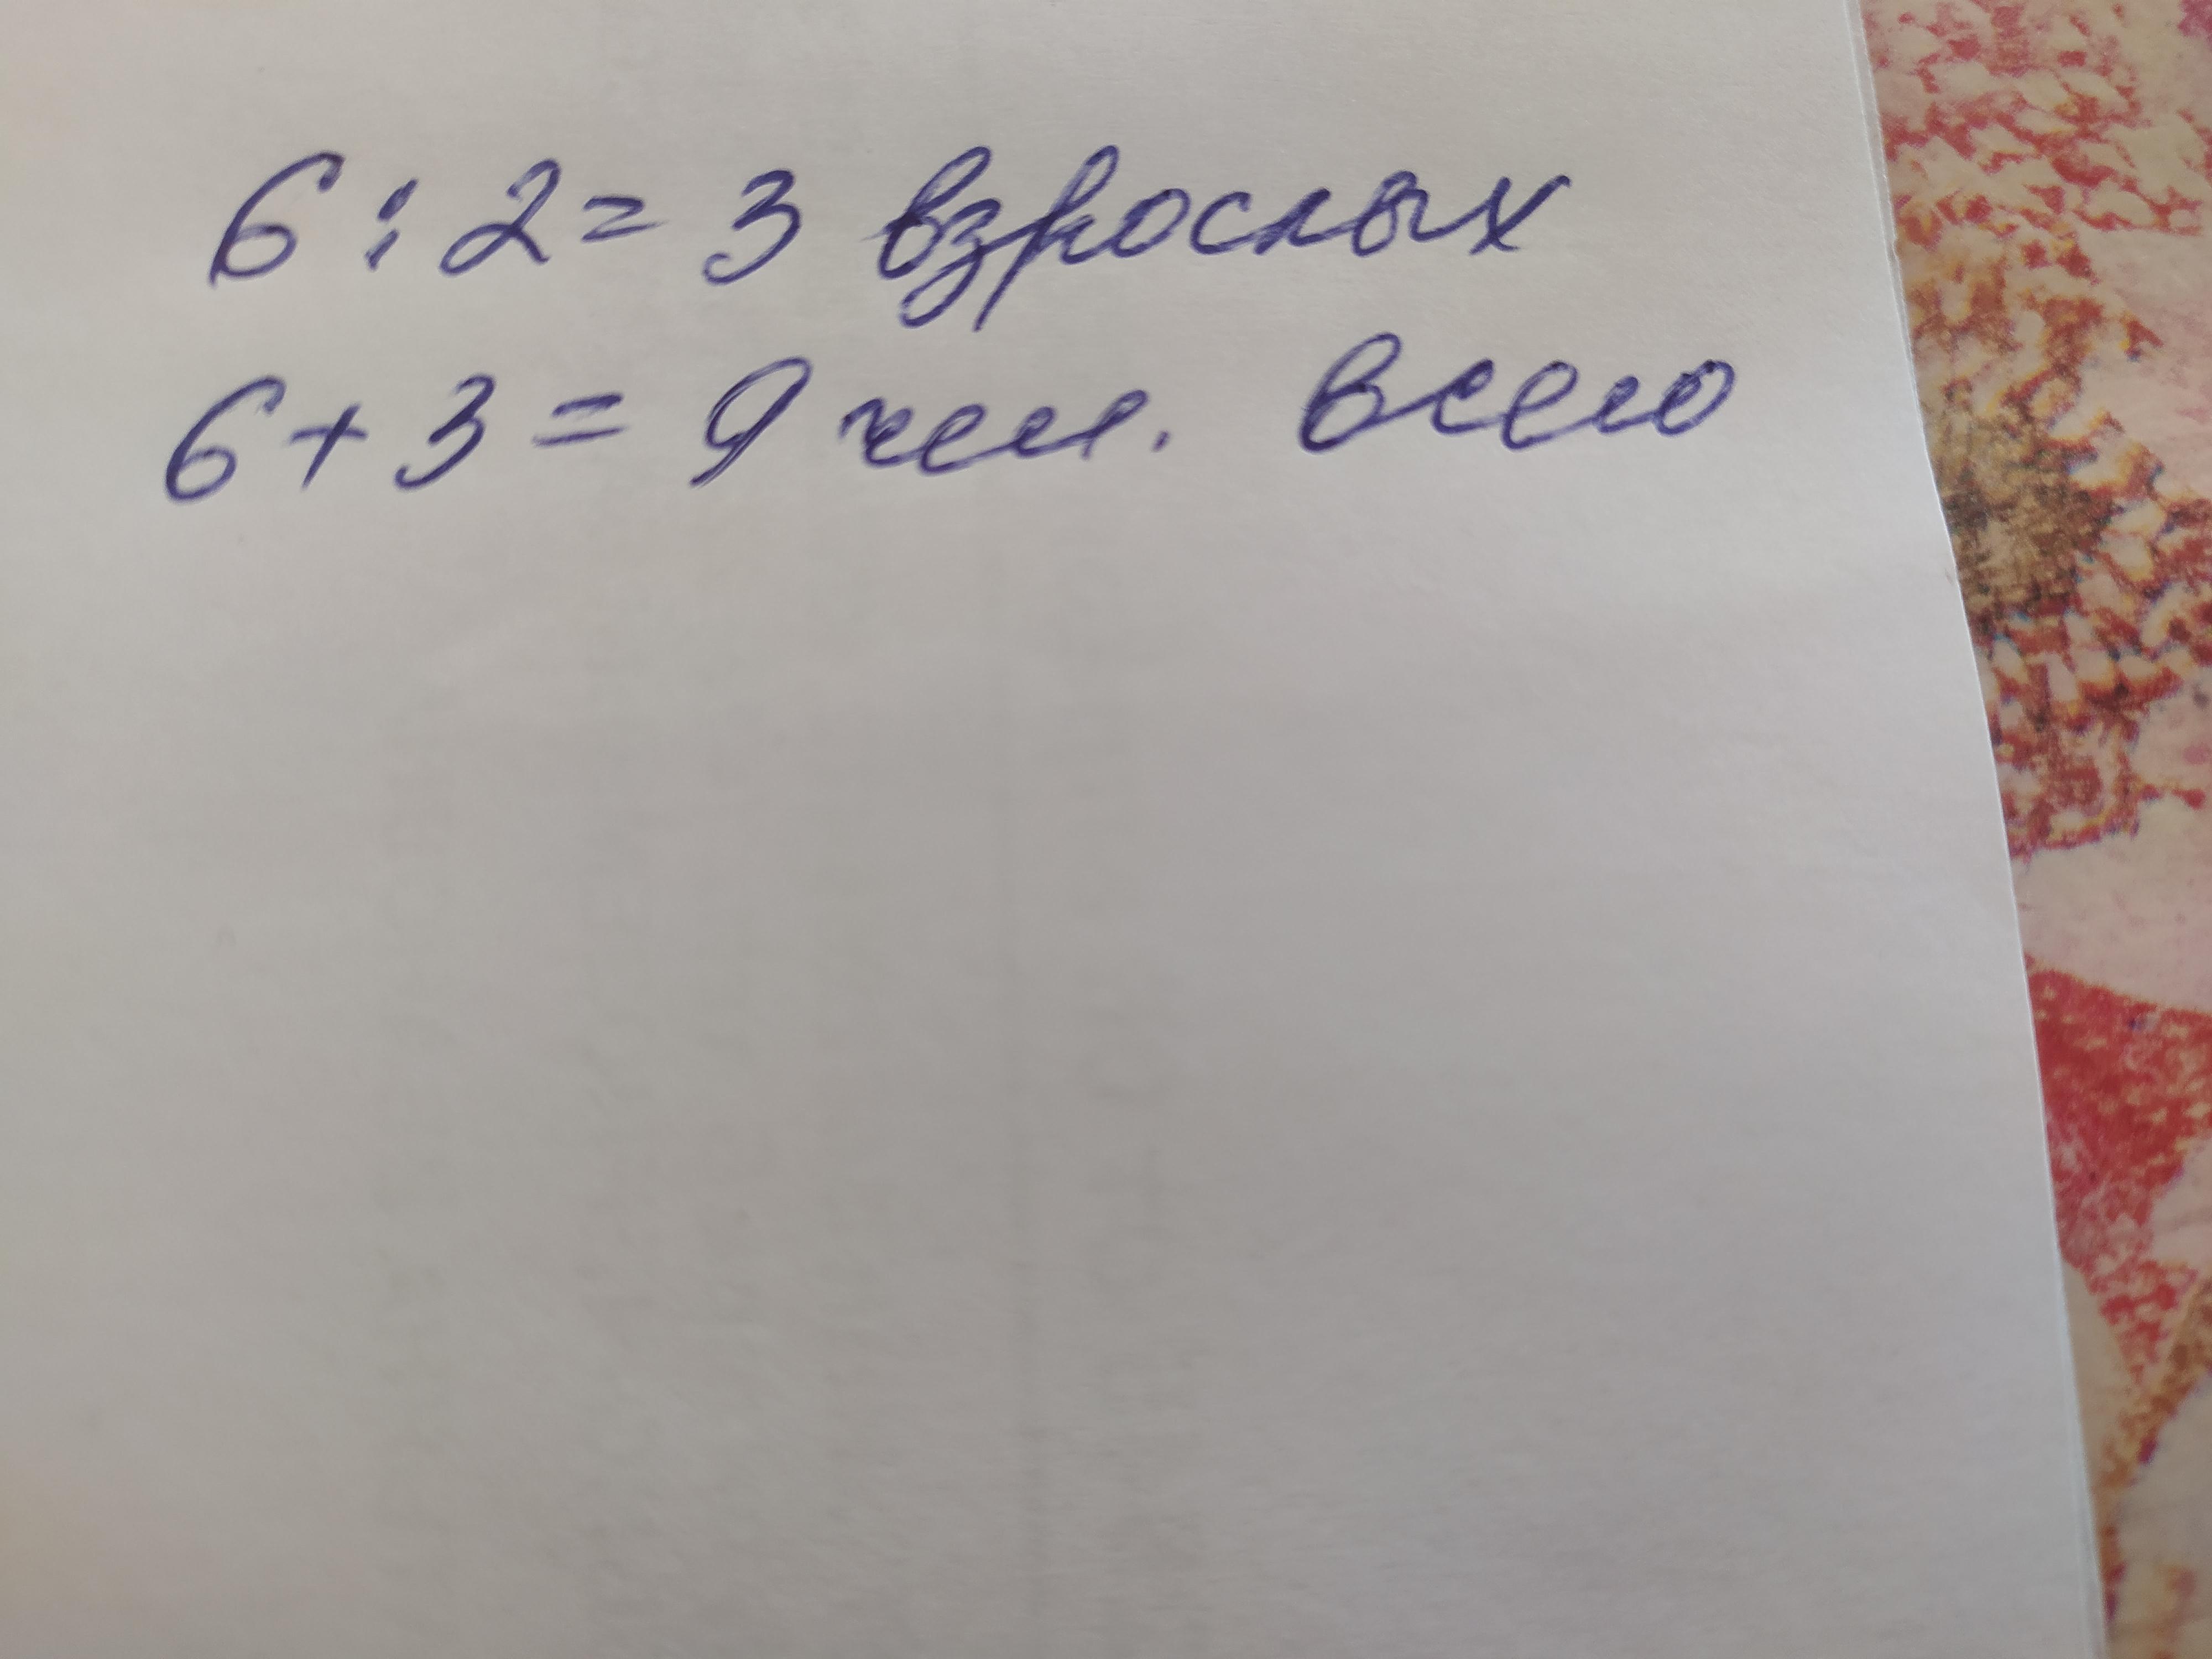 6 : 2 = 3 взрослых
6 + 3 = 9 чел. всего